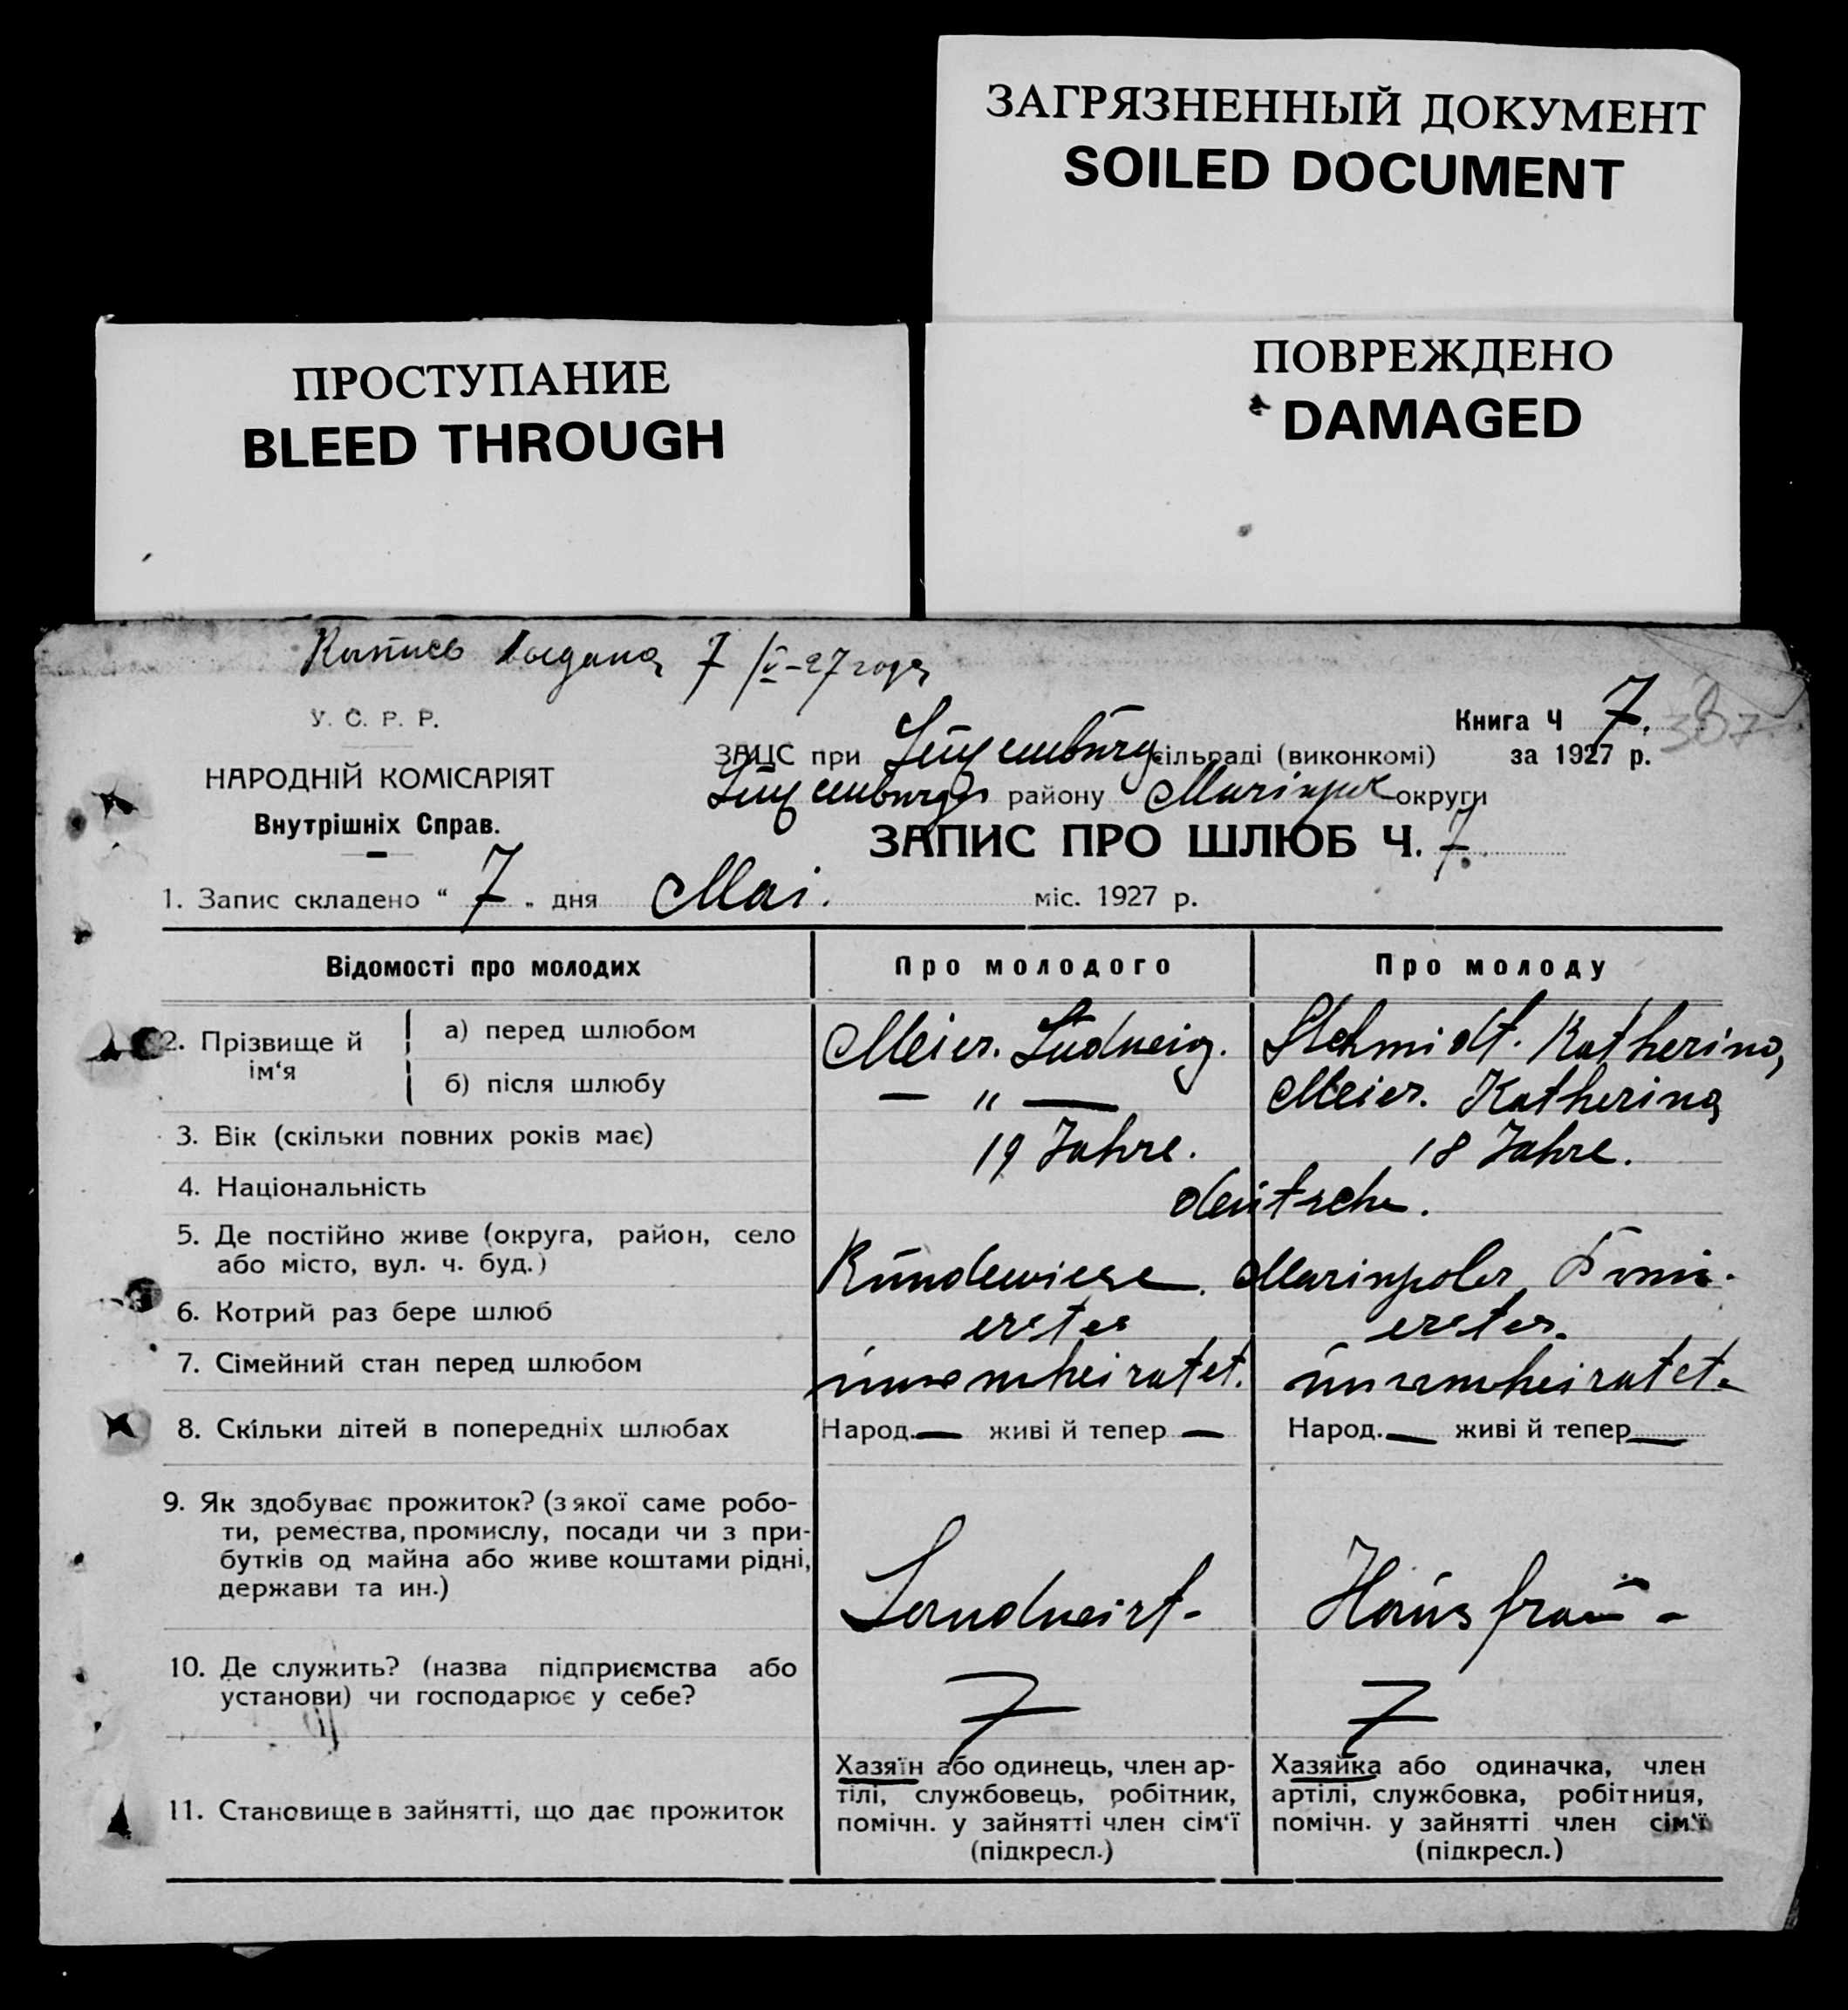 ЗАГРЯЗНЕННЫЙ ДОКУМЕНТ
SOILED DOCUMENT
ПРОСТУПАНИЕ
BLEED THROUGH
ПОВРЕЖДЕНО
DAMAGED
Выпись выдана 7/V-27 года
У. С. Р. Р.
НАРОДНІЙ КОМІСАРІЯТ
Внутрішніх Справ.
Книга Ч 7.
за 1927 р.
ЗАЦС при сільраді (виконкомі)
району округи
ЗАПИС ПРО ШЛЮБ Ч. 7.
1. Запис складено “ 7 „ дня Mai. міс. 1927 р.
Відомості про молодих Про молодого Про молоду
2. Прізвище й ім‘я
а) перед шлюбом Meier. Ludwig. Schmidt. Katherina
б) після шлюбу — " — Meier. Katherina
3. Вік (скільки повних років має) 19 Jahre. 18 Jahre.
4. Національність deutsche.
5. Де постійно живе (округа, район, село
або місто, вул. ч. буд.) Rundewiese. Mariupoler
6. Котрий раз бере шлюб erstes erstes.
7. Сімейний стан перед шлюбом
8. Скільки дітей в попередніх шлюбах Народ. — живі й тепер — Народ. — живі й тепер —
9. Як здобуває прожиток? (з якої саме робо-
ти, ремества, промислу, посади чи з при-
бутків од майна або живе коштами рідні,
держави та ин.) Landwirt - Hausfrau -
10. Де служить? (назва підприємства або
установи) чи господарює у себе? 7 7
11. Становище в зайнятті, що дає прожиток
Хазяїн або одинець, член ар-
тілі, службовець, робітник,
помічн. у зайнятті член сім‘ї
(підкресл.)
Хазяйка або одиначка, член
артілі, службовка, робітниця,
помічн. у зайнятті член сім‘ї
(підкресл.)